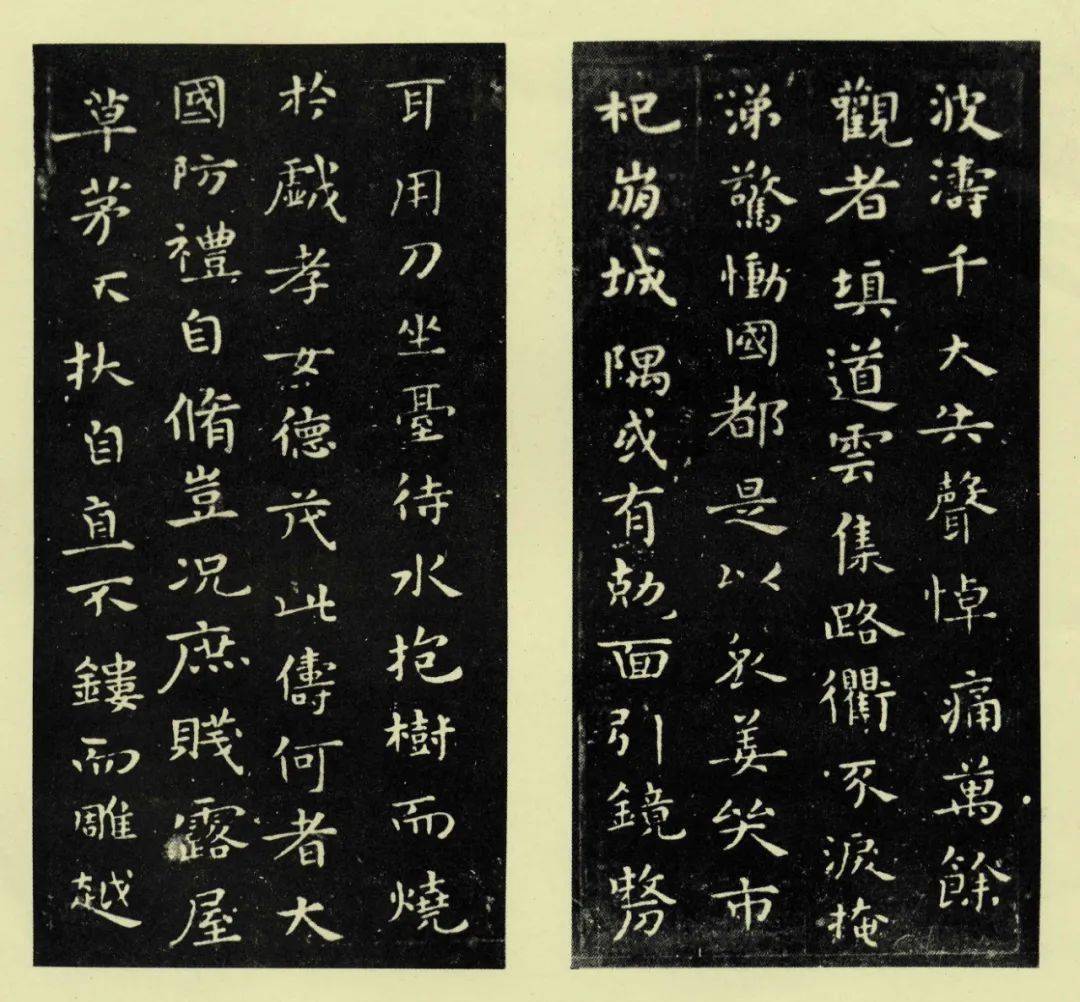 波濤千大失聲悼痛萬餘
觀者填道雲集路衢不淚掩
涕驚慟國都是以哀姜哭市
杞崩城隅或有勀面引鏡剺
耳用刀坐臺待水抱樹而燒
於戲孝女德茂此儔何者大
國防禮自脩豈況庶賤露屋
草茅不扶自直不鏤而雕越